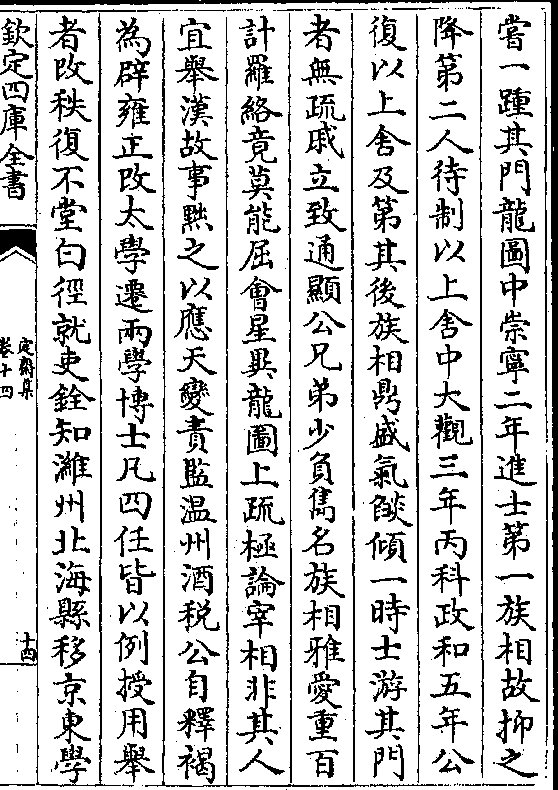 嘗一踵其門龍圖中崇寧二年進士第一族相故抑之
降第二人待制以上舍中大觀三年丙科政和五年公
復以上舍及第其後族相鼎盛氣燄傾一時士游其門
者無疏戚立致通顯公兄弟少負雋名族相雅愛重百
計羅絡竟莫能屈會星異龍圖上疏極論宰相非其人
宜舉漢故事黜之以應天變責監温州酒税公自釋褐
為辟雍正改太學遷兩學博士凡四任皆以例授用舉
者改秩復不堂白徑就吏銓知濰州北海縣移京東學
欽定四庫全書
定齋集
卷十四
十四